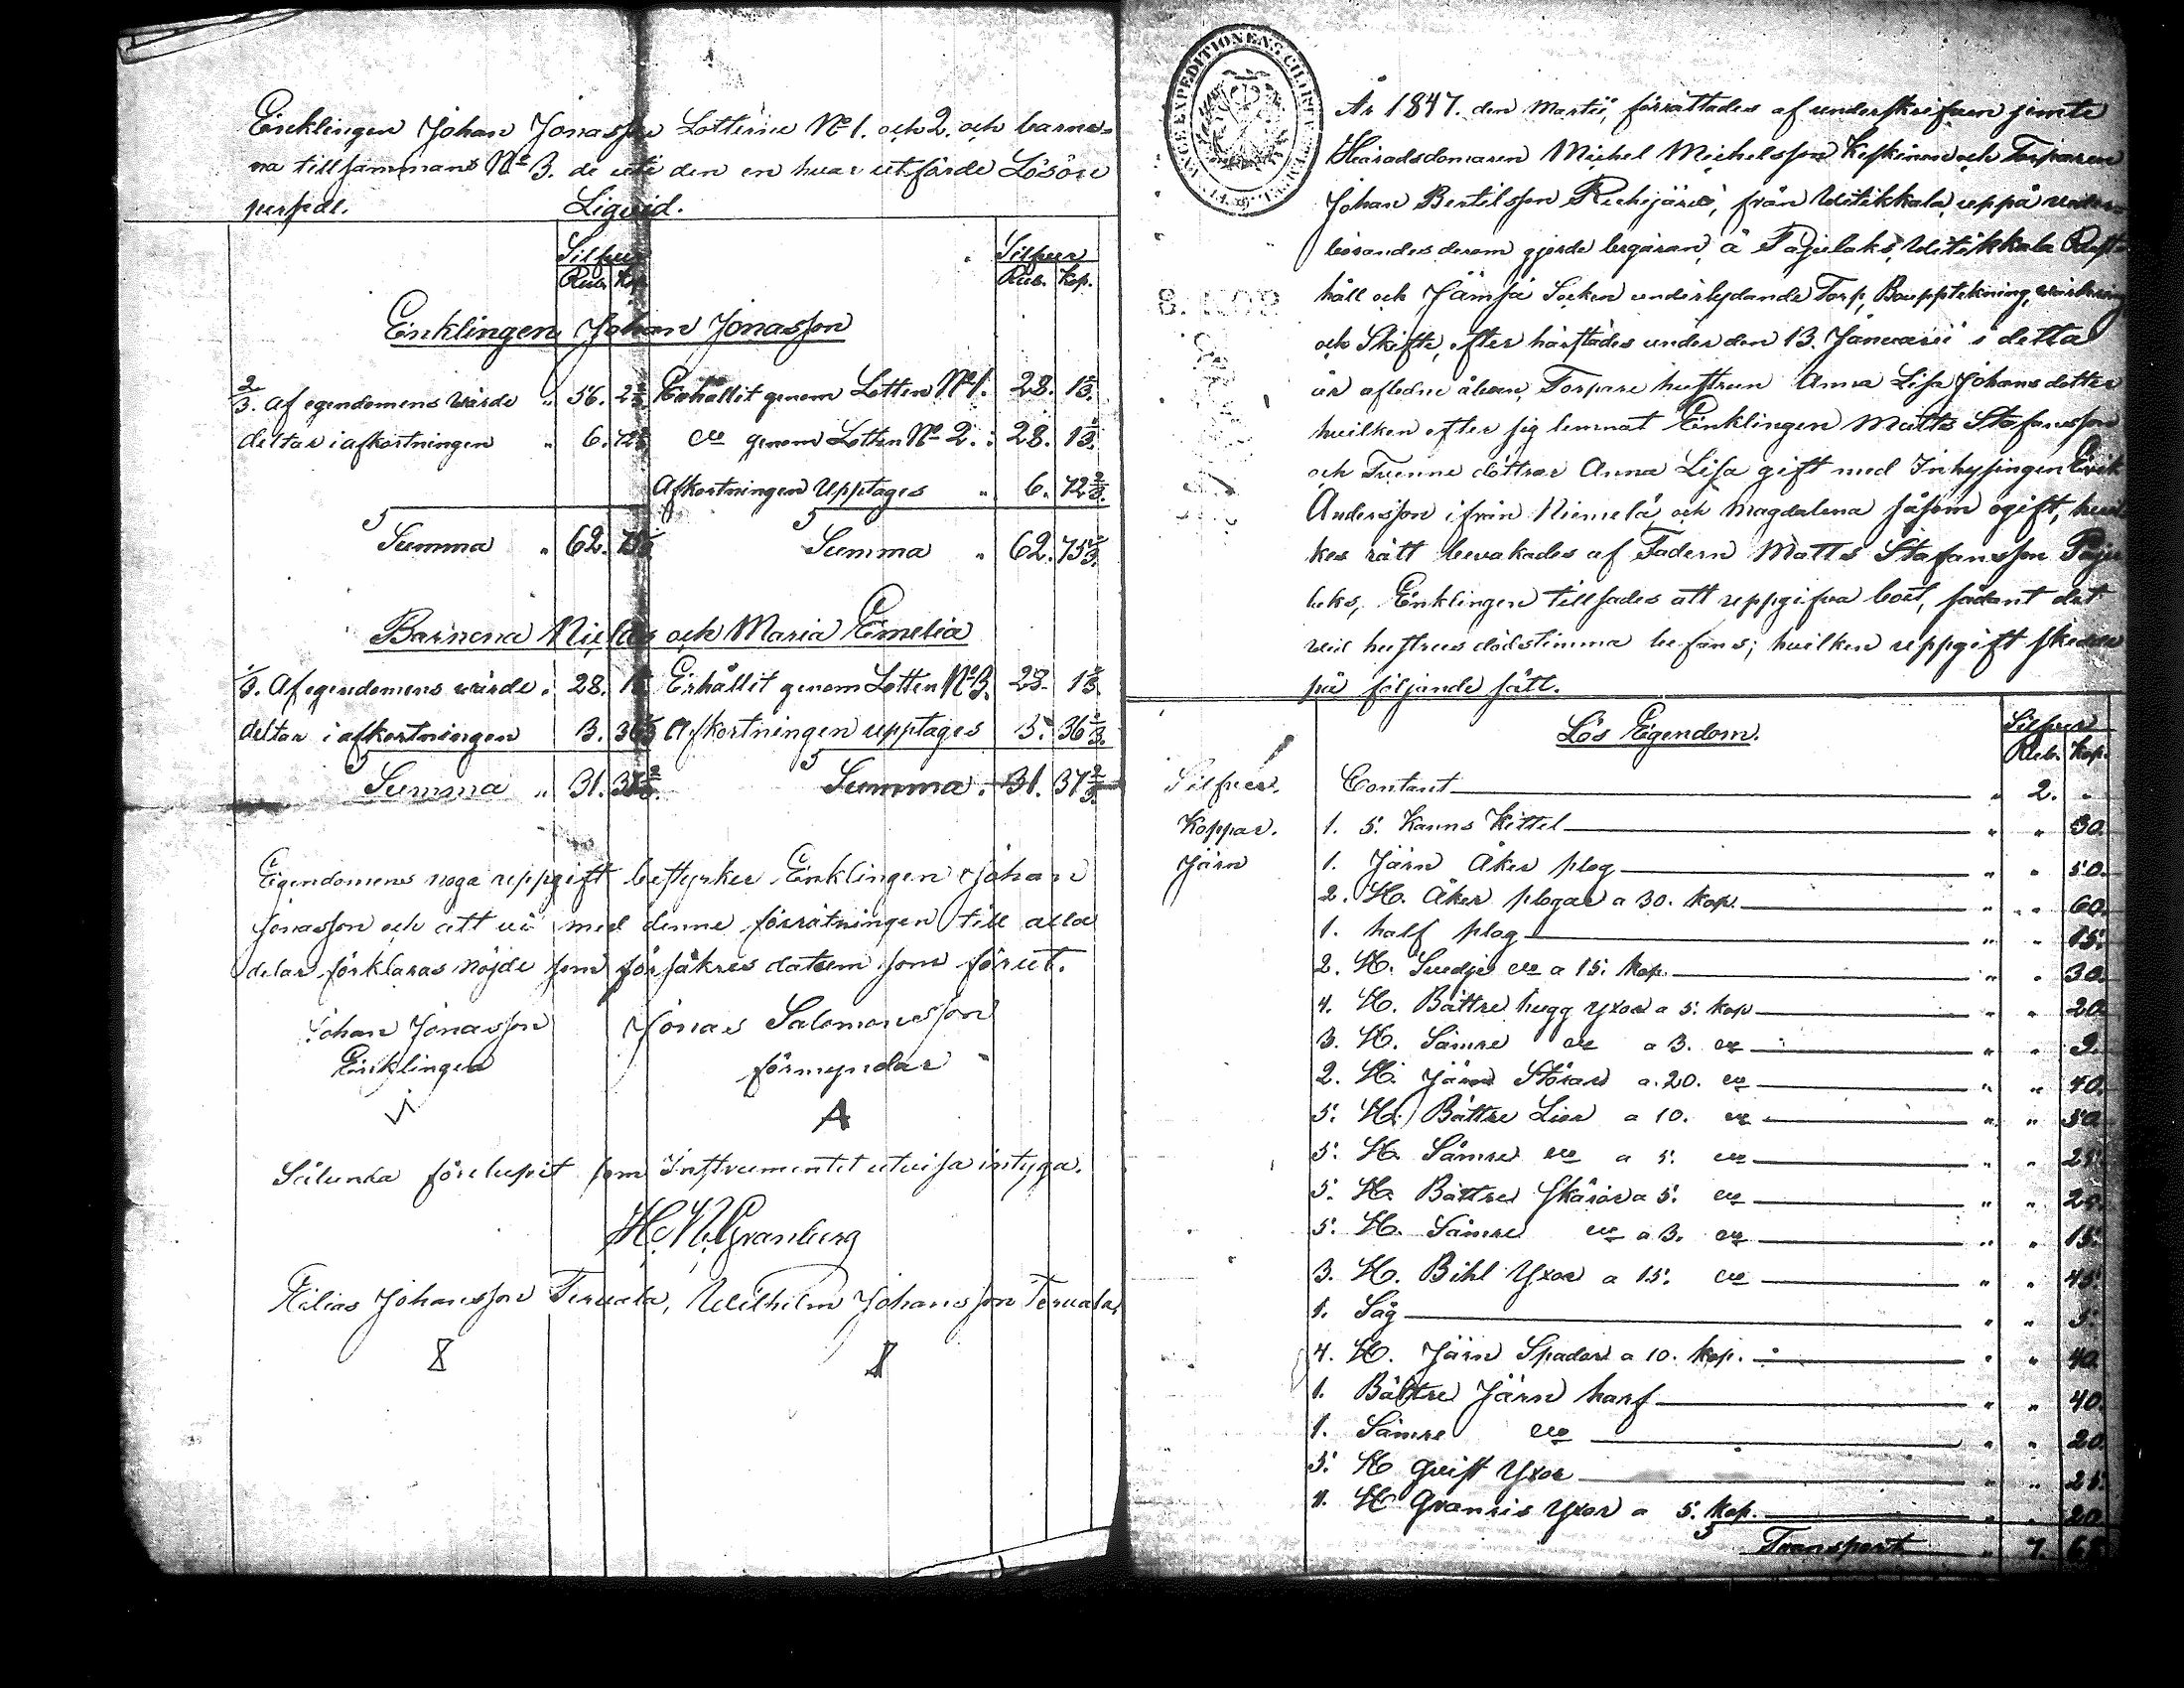 Enklingen Johan Jonasson Lotterne No 1. och 2. och barne-
na tillsammans No 3. de uti den en hvar utförde Lösöre
persedl.
Liqvid.
Silfver
Rub. Kop.
Silfver
Rub. Kop.
Enklingen Johan Jonasson
2/3. af egendomens värde " 56. 2 2/3. Erhållit genom Lotten No 1. 28. 1 1/3.
deltar i afkortningen " 6. 72 2/3. do genom Lotten No 2. " 28. 1 1/3.
Afkortningen Upptages " 6. 72 2/3.
Summa " 62. 75 1/3. Summa " 62. 75 1/3.
Barnena Niclas och Maria Emelia
1/3. Af egendomens värde " 28. 1 1/3. Erhållit genom Lotten No 3. 28. 1 1/3.
deltar i afkortningen 3. 36 1/3. Afkortningen upptages 3. 36 1/3.
Summa " 31. 37 2/3. Summa " 31. 37 2/3.
Egendomens noga uppgift bestyrker Enklingen Johan
Jonasson och att vi med denne förrätningen till alla
delar förklaras nöjde som försäkres datum som förut.
Johan Jonasson Jonas Salomonsson
Enklingen förmyndar
A
Sålunda förelupit som Instrumentet utvisa intyga.
H. N. Granberg
Elias Johansson Tervala, Wilhelm Johansson Tervala,
År 1847. den Martii, förrättades af underskrefven jemte
Häradsdomaren Michel Michelsson Keskinen och Torparen
Johan Bertilsson Ruhijärvi, från Witikkala, uppå veder-
börandes derom gjorde begäran, å Pajulaks, Witikkala Rust-
håll och Jämsä Socken underlydande Torp, Bouppteckning, värdering
och Skifte, efter härstädes under den 13. Januarii i detta
år afledne åboen, Torpare hustrun Anna Lisa Johansdotter
hvilken efter sig lemnat Enklingen Matts Stafansson
och Tvenne döttrar Anna Lisa gift med Inhysingen Erik
Andersson ifrån Niemelä, och Magdalena såsom ogift, hvil-
kes rätt bevakades af Fadern Matts Stafansson Paju-
laks, Enklingen tillsades att uppgifva boet, sådant det
vid hustruns dödstimma befans; hvilken uppgift skedde
på följande sätt.
Lös Egendom.
Silfver
Rub. Kop.
Silfver. Contant " 2. "
Koppar. 1. 5. Kanns Kittel " " 30.
Järn 1. Järn Åker plog " " 50.
2. St. Åker plogar a 30. kop. " " 60.
1. half plog " " 15.
2. St. Svedje do a 15. kop. " " 30.
4. St. Bättre hugg yxor a 5. kop " " 20.
3. St. Sämre do a 3. do " " 9.
2. St. Järn Störar a 20. do " " 40.
5. St. Bättre Lior a 10. do " " 50.
5. St. Sämre do a 5. do " " 25.
5. St. Bättre skäror a 5. do " " 25.
5. St. Sämre do a 3. do " " 15.
3. St. Bihl Yxor a 15. do " " 45.
1. Såg " " 5.
4. St. Järn Spadar a 10. kop. " " 40.
1. Bättre Järn harf " " 40.
1. Sämre do " " 20.
5. St Qvist Yxor " " 25.
4. St Yxor a 5. kop. " " 20.
Transport " 7.